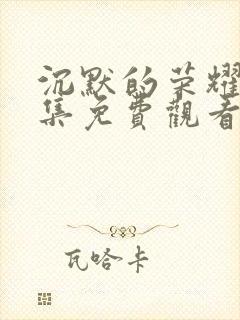 沉默的荣耀
集免費觀看
瓦哈卡